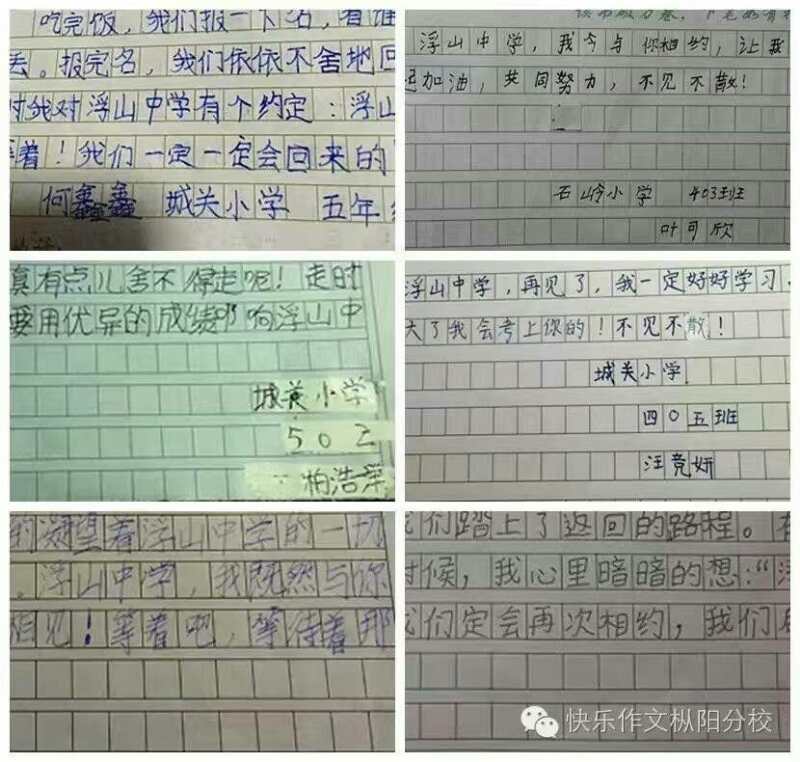 吃完饭，我们报一下名，看谁
丢。报完名，我们依依不舍地回
时我对浮山中学有个约定：浮山
等着！我们一定一定会回来的！
何鑫鑫 城关小学 五年
浮山中学，我今与你相约，让我
加油，共同努力，不见不散！
石岭小学 403班
叶可欣
真有点儿舍不得走呢！走时
要用优异的成绩叩响浮山中
城关小学
502
柏浩
浮山中学，再见了，我一定好好学习，
大了我会考上你的！不见不散！
城关小学
四〇五班
汪竞妍
的凝望着浮山中学的一切
。浮山中学，我既然与你
相见！等着吧，等待着那
我们踏上了返回的路程。在
时候，我心里暗暗的想：“浮
我们定会再次相约，我们
快乐作文枞阳分校